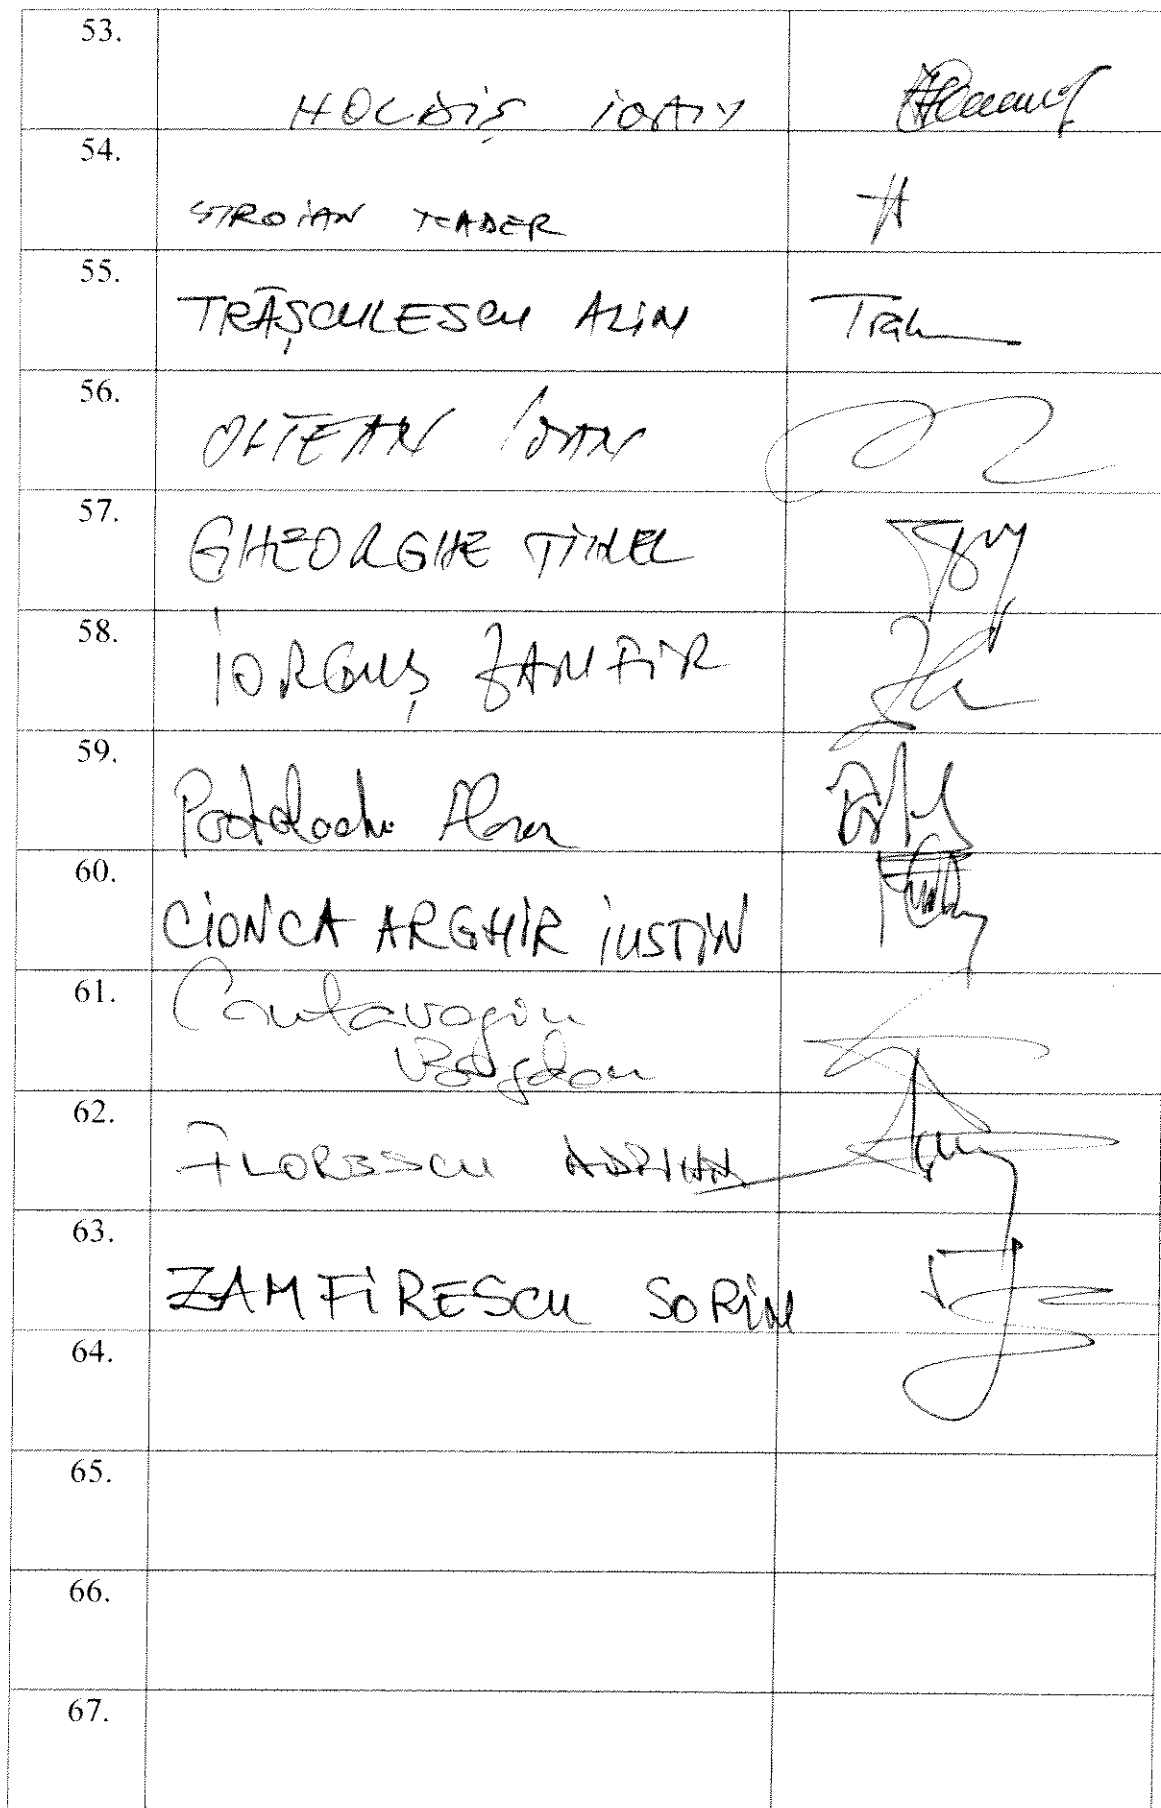 53.
HOLDIȘ IOAN
54.
STROIAN TEADER
55.
TRĂȘCULESCU ALIN
56.
OLTEAN IOAN
57.
GHEORGHE TINEL
58.
IORGUȘ ZAMFIR
59.
60.
CIONCA ARGHIR IUSTIN
61.
Cantaragiu
Bogdan
62.
FLORESCU ADRIAN
63.
ZAMFIRESCU SORIN
64.
65.
66.
67.